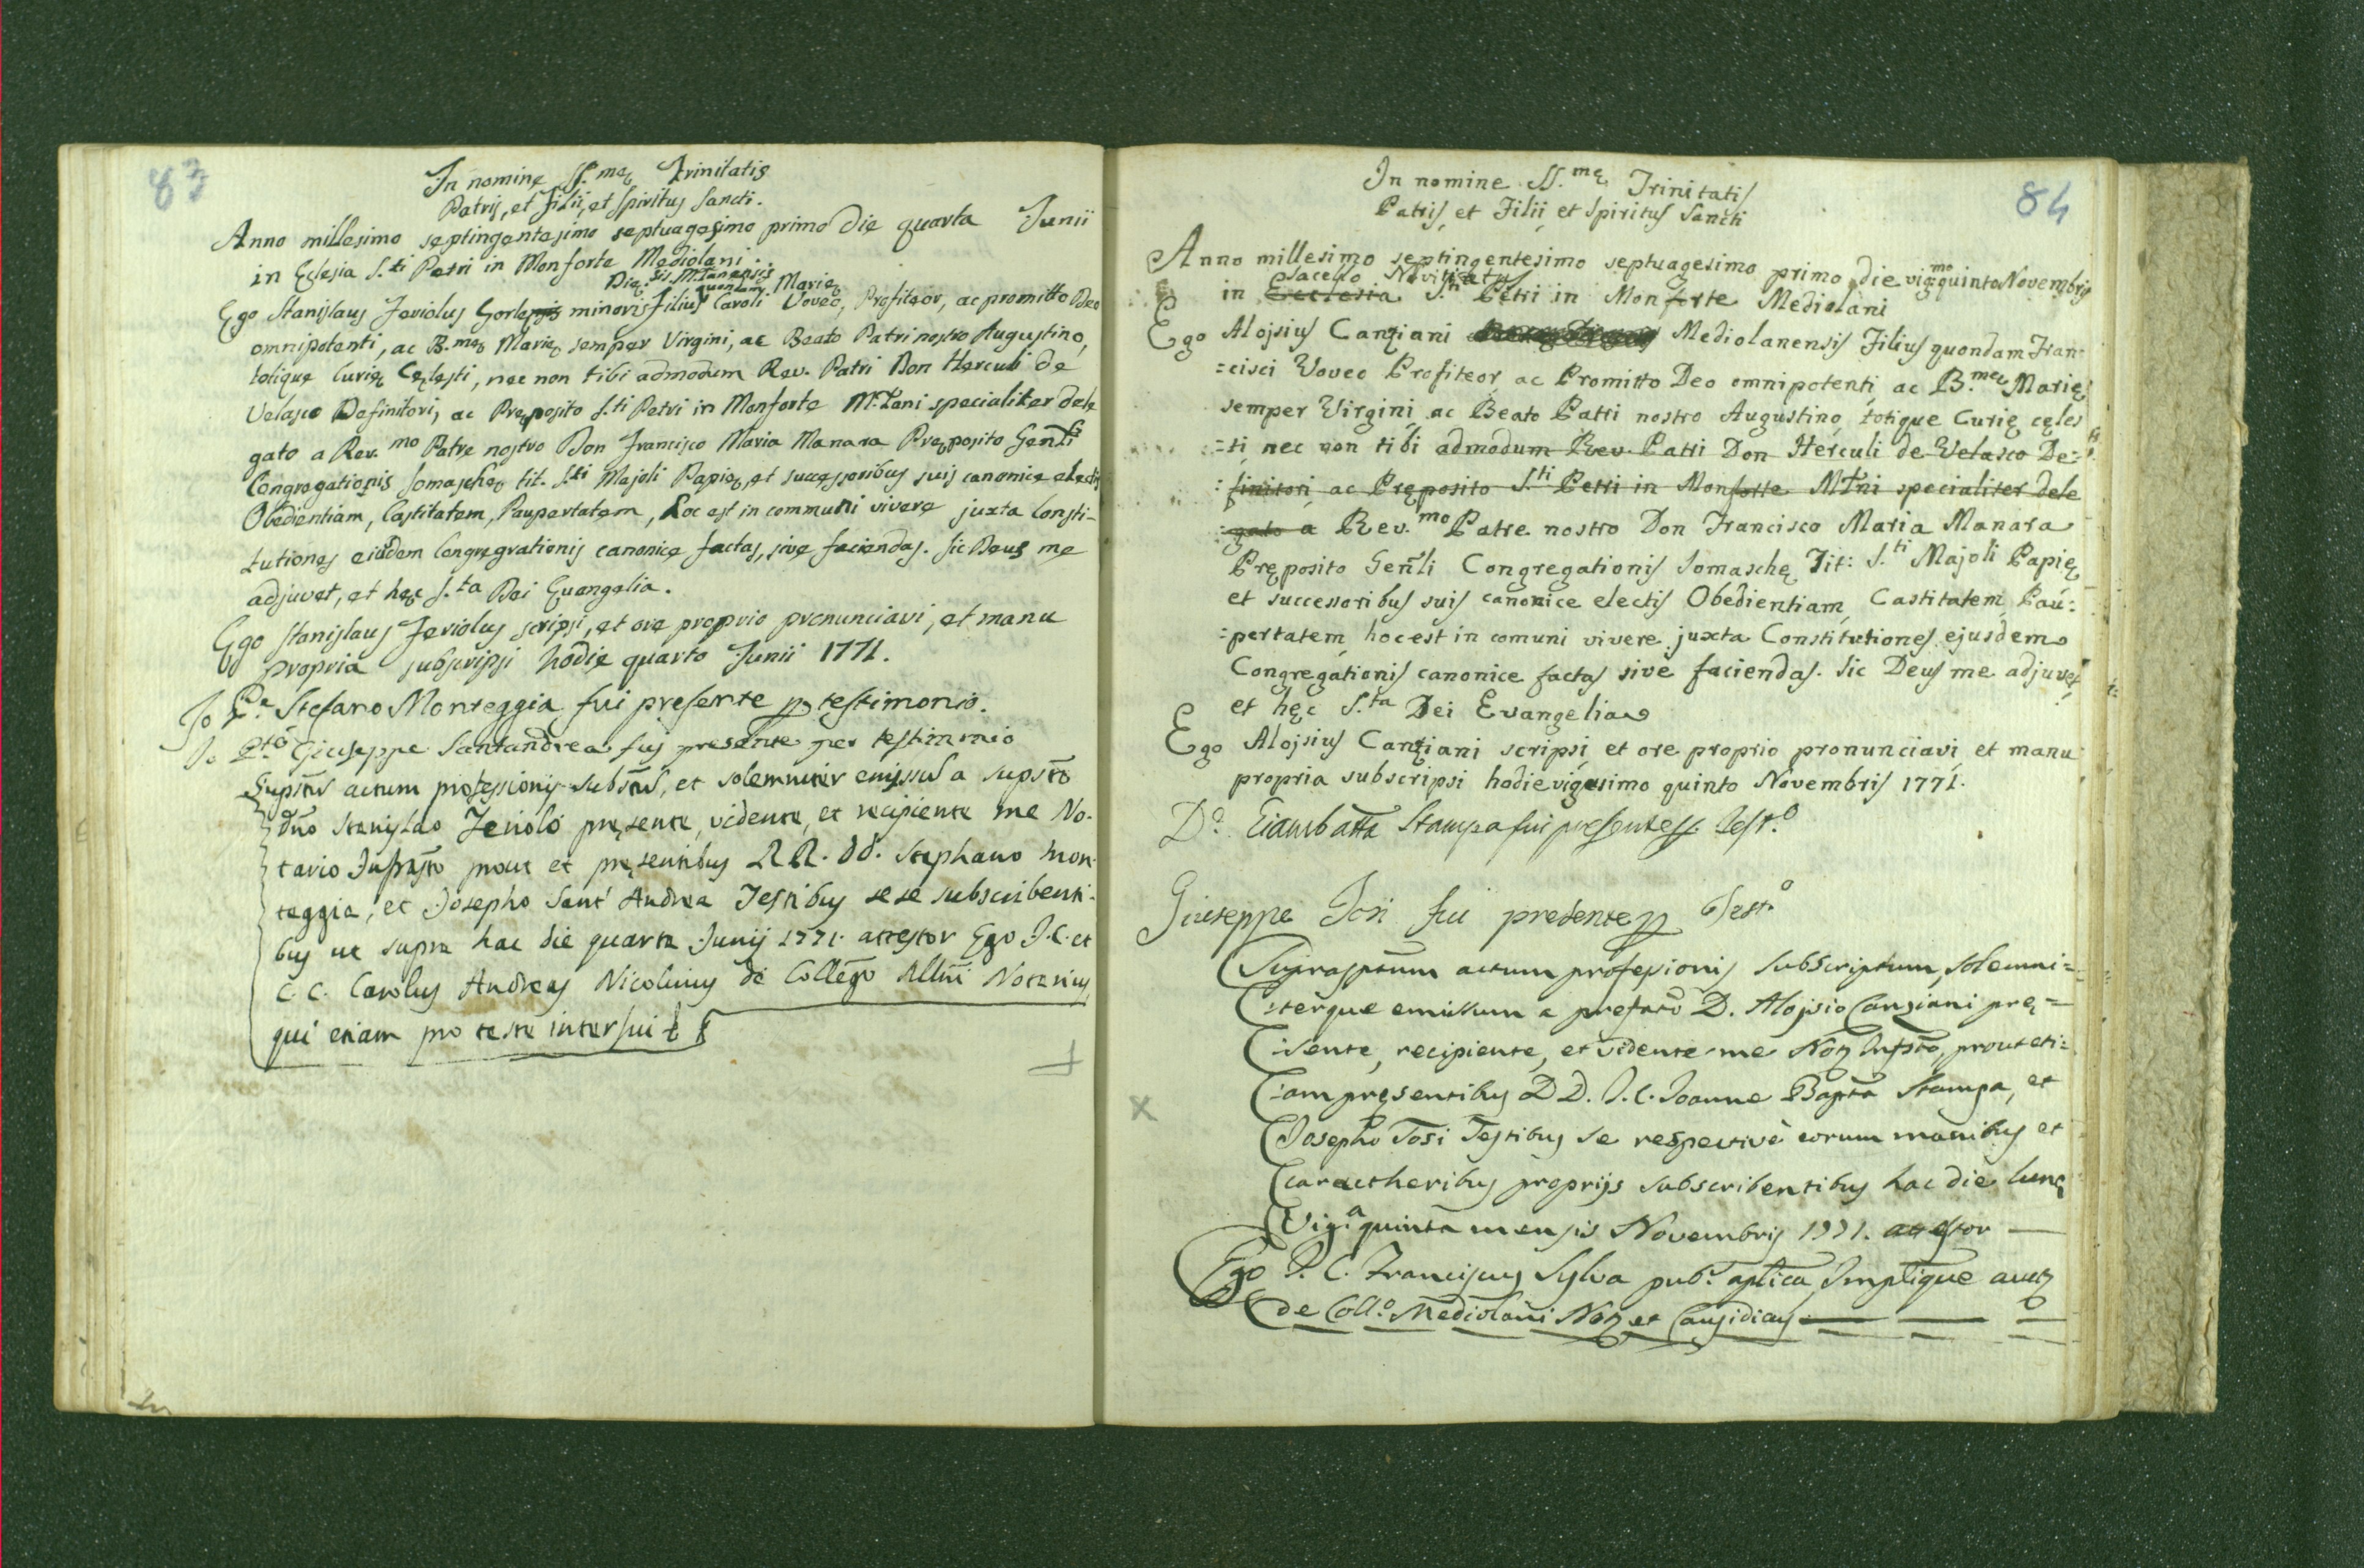 83
In nominę SS.mę Trinitatis
Patris, et Filii, et Spiritus Sancti.
Anno millesimo septingentesimo septuagesimo primo die quarta Junii
in Eclesia S.ti Petri in Monforte Mediolani.
Dię.sis M.Lanensis
quondam Marię
Ego Stanislaus Feriolus minoris Filius Caroli Voveo, Profiteor, ac promitto Deo
omnipotenti, ac B.mę Marię semper Virgini, ac Beato Patri nostro Augustino,
totique Curię Cęlesti, nec non tibi admodum Rev. Patri Don Herculi de
Velasco Definitori, ac Pręposito S.ti Petri in Monforte M.Lani specialiter dele
gato a Rev.mo Patre nostro Don Francisco Maria Manara Pręposito Genłi
Congregationis Somaschę tit. S.ti Majoli Papię, et successoribus suis canonice electis
Obedientiam, Castitatem, Paupertatem, hoc est in communi vivere juxta Consti-
tutiones eiusdem Congregrationis canonice factas, sive faciendas. Sic Deus me
adjuvet, et hęc S.ta Dei Evangelia.
Ego Stanislaus Feriolus scripsi, et ore proprio pronunciavi, et manu
propria subscripsi hodie quarto Junii 1771.
Io P.e Stefano Monteggia fui presente p testimonio.
Io Giuseppe Santandrea fui presente per testimonio
Supstũs actum professionis subsũs, et solemniter emissũs a supsto
Dño Stanislao Feriolo pręsente, vidente, et recipiente me No-
tario Infrasto prout et pręsentibus RR. DD. Stephano Mon-
teggia, et Josepho Sant' Andrea Testibus se se subscribenti-
bus ut supra hac die quarta Junij 1771. attestor Ego J.C. et
C.C. Carolus Andreas Nicolinus de Collegio Mllni Notarius,
qui etiam pro teste interfui
84
In nomine SS.mę Trinitatis
Patris, et Filii, et Spiritus Sancti
Anno millesimo septingentesimo septuagesimo primo, die vig.mo quinto Novembris
Sacello Novitiatus
in Ecclesia S.ti Petri in Monforte Mediolani
Ego Alojsius Canziani Mediolanensis Filius quondam Fran-
=cisci Voveo Profiteor, ac Promitto Deo omnipotenti, ac B.mę Marię
semper Virgini, ac Beato Patri nostro Augustino, totique Curię cęles
=ti, nec non tibi admodum Rev. Patri Don Herculi de Velasco De=
:finitori ac Pręposito S.ti Petri in Monforte M.Lni specialiter dele
:gato a Rev.mo Patre nostro Don Francisco Maria Manara
Pręposito Genłi Congregationis Somaschę Tit: S.ti Majoli Papię
et successoribus suis canonice electis Obedientiam, Castitatem, Pau:
:pertatem, hoc est in comuni vivere juxta Constitutiones ejusdem
Congregationis canonice factas sive faciendas. Sic Deus me adjuvet
et hęc S.ta Dei Evangelia
Ego Alojsius Canziani scripsi, et ore proprio pronunciavi, et manu
propria subscripsi hodie vigesimo quinto Novembris 1771.
D. Giambatta Stampa fui presente p. Test.o
Giuseppe Tosi fui presente p Test.o
Suprasptum actum profesionis subscriptum, solemni=
:terque emissum a prefato D. Alojsio Canziani prę=
:sente, recipiente, et vidente me Not Infsto, prout eti=
:am pręsentibus DD. J.C. Joanne Bapta Stampa, et
Josepho Tosi Testibus se respective eorum manibus et
caractheribus proprijs subscribentibus hac die lunę
Vig.a quinta mensis Novembris 1771. attestor —
Ego J.C. Franciscus Sylva pub.s aplica Imptique auct
de Coll.o Mediolani Not et Causidicus